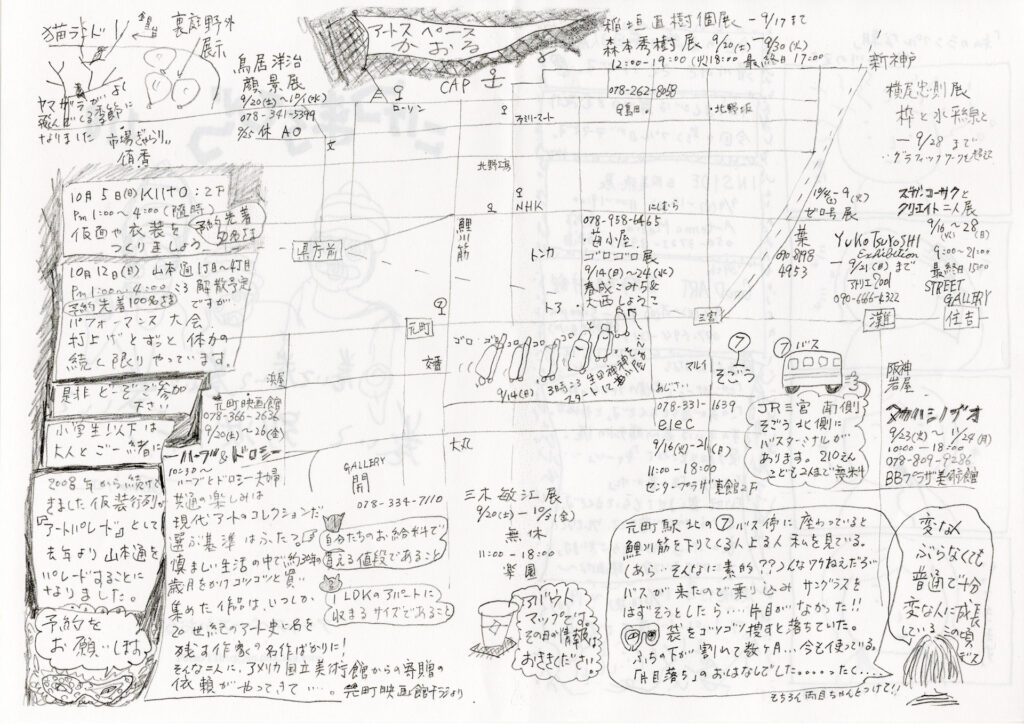 アートスペース
かおる
猫ラボド
裏庭野外
展示
ヤマガラがよく
飛んでくる季節に
なりました
市場ぎゃらりぃ
侑香
鳥居洋治
顔景展
9/20(土)~10/1(水)
078-341-5399
9/25休 AO
稲垣直樹個展 -9/17まで
森本秀樹展 9/20(土)~9/30(火)
12:00-19:00 (火)18:00 最終日17:00
078-262-8058
CAP
ローソン
ファミリーマート
・北野坂
新神戸
横尾忠則展
枠と水平線と
-9/28まで
グラフィックワークを超えて
北野工房
NHK
にしむら
鯉川筋
県庁前
トンカ
トア
10月5日(日)KIITO:2F
Pm 1:00~4:00 (随時)
仮面や衣装を
つくりましょう
予約先着
50名迄
10月12日(日) 山本通1丁目~4丁目
Pm 1:00~4:00ころ解散予定
予約先着100名迄ですが
パフォーマンス大会
打上げとずっと休かの
続く限りやっています。
是非どーぞご参加
下さい
小学生以下は
大人とご一緒に
2008年から続けて
きました仮装行列が
『アートパレード』として
去年より山本通を
パレードすることに
なりました。
予約を
お願いします
078-958-6465
・苺小屋
ゴロゴロ展
9/14(日)~24(水)
春成こみち&
大西しょうこ
ゼロ号展
菜
078-8198
4953
YUKO TSUYOSHI
Exhibition
-9/21(日)まで
アトリエ2001
090-6666-6322
スガ・コーサクと
クリエイト二人展
9/16~28
(火) (日)
9:00-21:00
最終日15:00
STREET
GALLERY
住吉
灘
三宮
元町
交番
ゴロ・ゴロ
9/14(日) 3時ころ生田神社を
スタートして
マルイ
そごう
⑦
⑦バス
JR三宮 南側
そごう北側に
バスターミナルが
あります。210えん
こども2人まで無料
阪神
岩屋
タカハシノブオ
9/23(火)~11/24(月)
10:00-18:00
078-809-9286
BBプラザ美術館
あじさい
078-331-1639
elec
9/16(火)-21(日)
11:00-18:00
センタープラザ東館2F
浜屋
元町映画館
078-366-2636
9/20(土)~26(金)
ハーブ&ドロシー
10:30~
ハーブとドロシー夫婦
共通の楽しみは
現代アートのコレクション。
選ぶ基準はふたつ。
自分たちのお給料で
買える値段であること
1LDKのアパートに
収まるサイズであること
慎ましい生活の中で約30年の
歳月をかけコツコツと買い
集めた作品は、いつしか
20世紀のアート史に名を
残す作家の名作ばかりに!
そんな二人に、アメリカ国立美術館からの寄贈の
依頼がやってきて…。元町映画館チラシより
大丸
GALLERY
開
078-334-7110
三木敏江展
9/20(土)~10/3(金)
無休
11:00-18:00
楽園
アバウト
マップです。
その日の情報は
おききください
元町駅北の⑦バス停に座わっていると
鯉川筋を下りてくる人上る人 私を見ている。
(あら・そんなに素的??)んなワケねえだろ
バスが来たので乗り込み サングラスを
はずそうとしたら‥‥片目がなかった!!
袋をゴソゴソ捜すと落ちていた。
ふちの下が割れて数ヶ月…今も使っている。
「片目落ち」のおはなしでした‥‥‥ったく‥‥
もちろん両目ちゃんとつけて!!
変なめ
ぶらなくても
普通で十分
変な人に成長
している この頃
デス